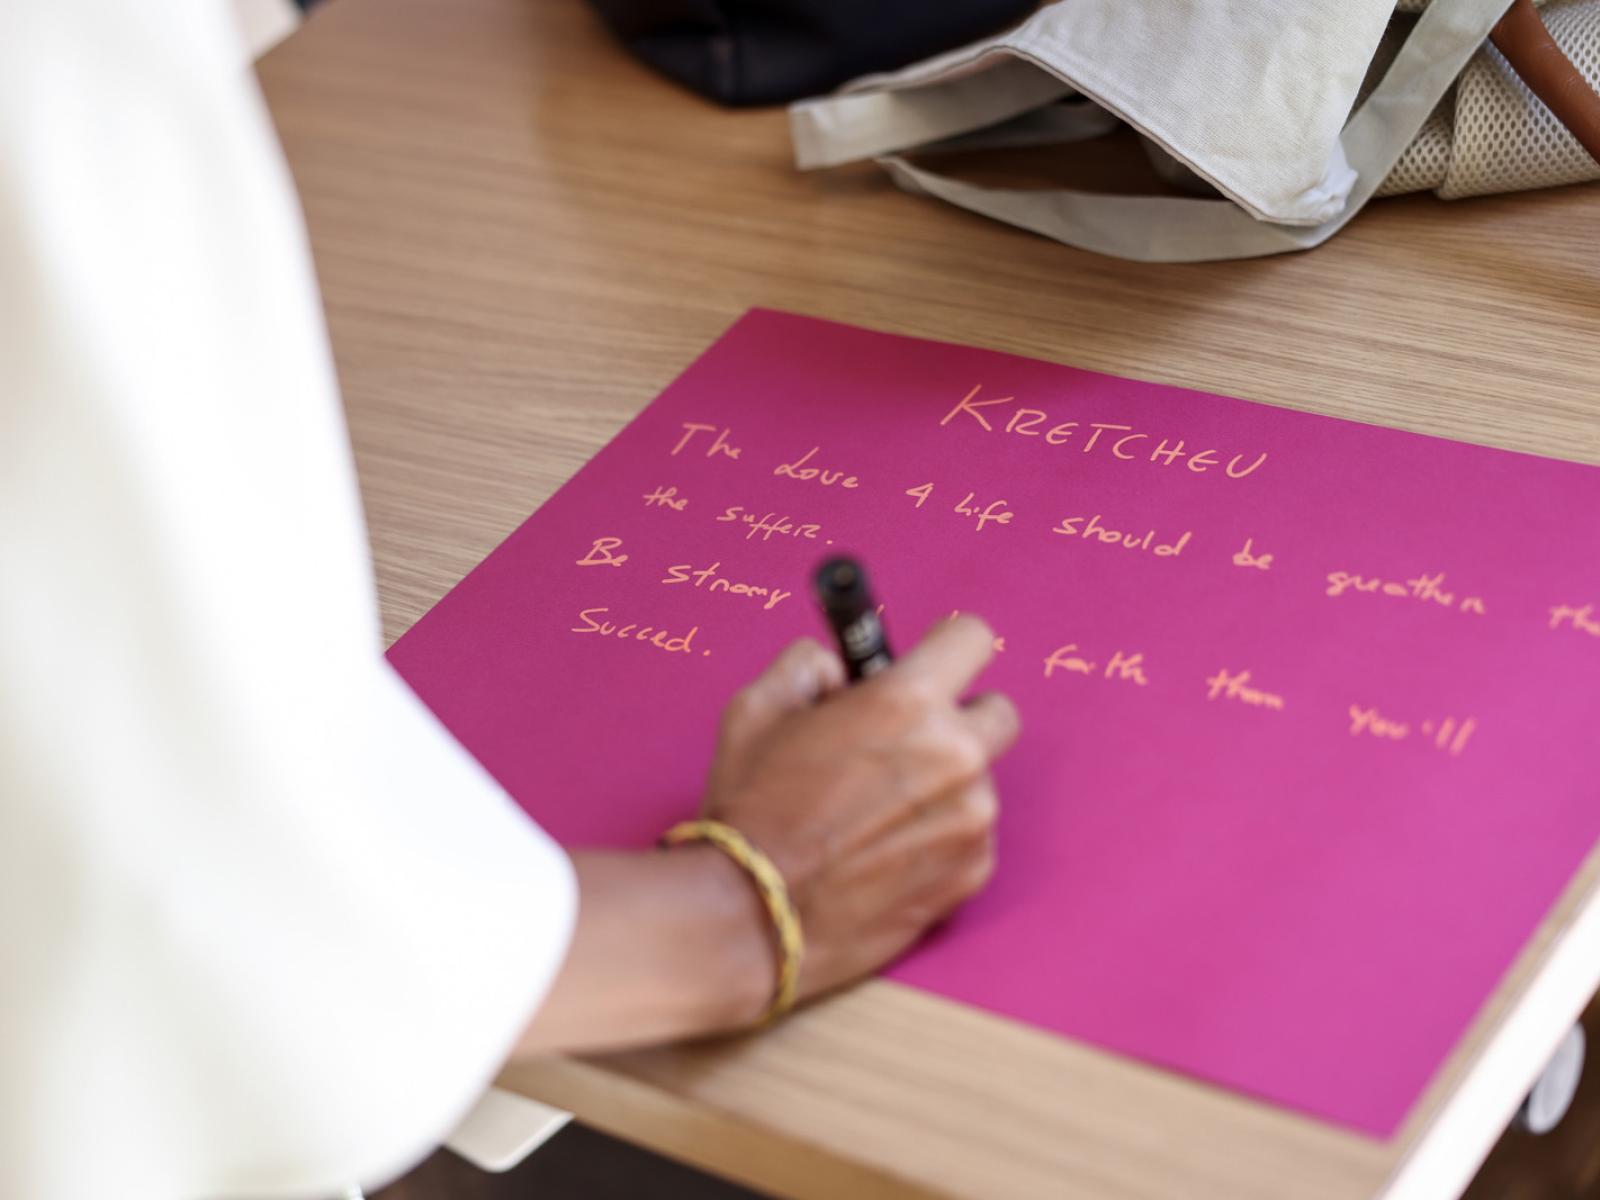 KRETCHEU
The Love 4 Life should be greather
the suffer.
Be strong faith then you'll
Succed.